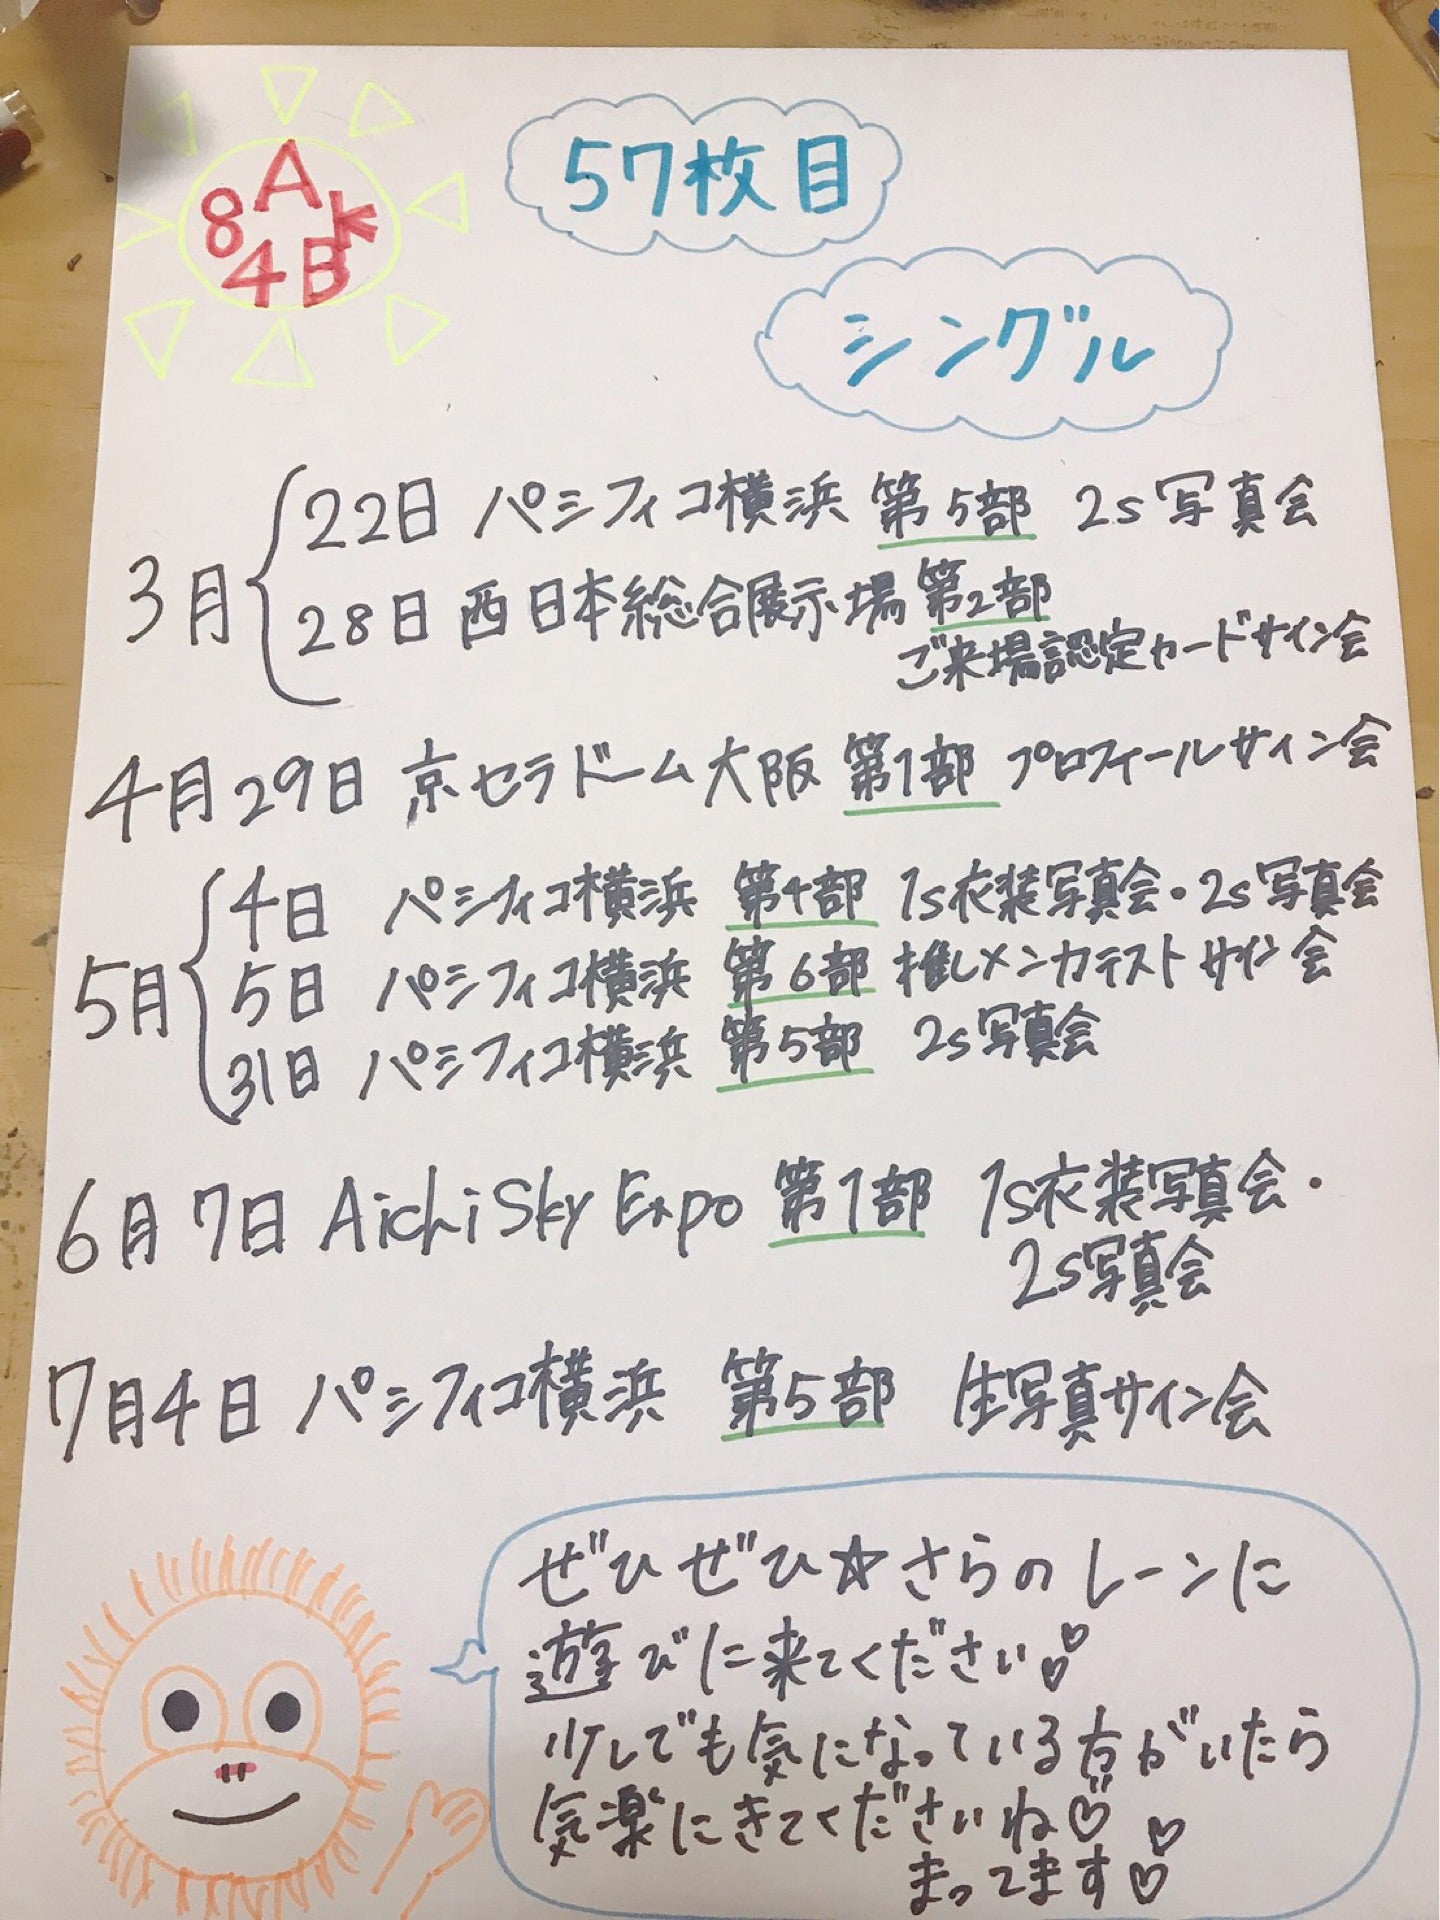 AK
84B
57枚目
シングル
3月
22日 パシフィコ横浜 第5部 2s写真会
28日 西日本総合展示場 第2部
ご来場認定カードサイン会
4月29日 京セラドーム大阪 第1部 プロフィールサイン会
5月
4日 パシフィコ横浜 第4部 1s衣装写真会・2s写真会
5日 パシフィコ横浜 第6部 推しメンカテストサイン会
31日 パシフィコ横浜 第5部 2s写真会
6月7日 Aichi Sky Expo 第1部 1s衣装写真会・
2s写真会
7月4日 パシフィコ横浜 第5部 生写真サイン会
ぜひぜひ☆さらのレーンに
遊びに来てください♡♡
少しでも気になっている方がいたら
気楽にきてくださいね♡
まってます♡♡